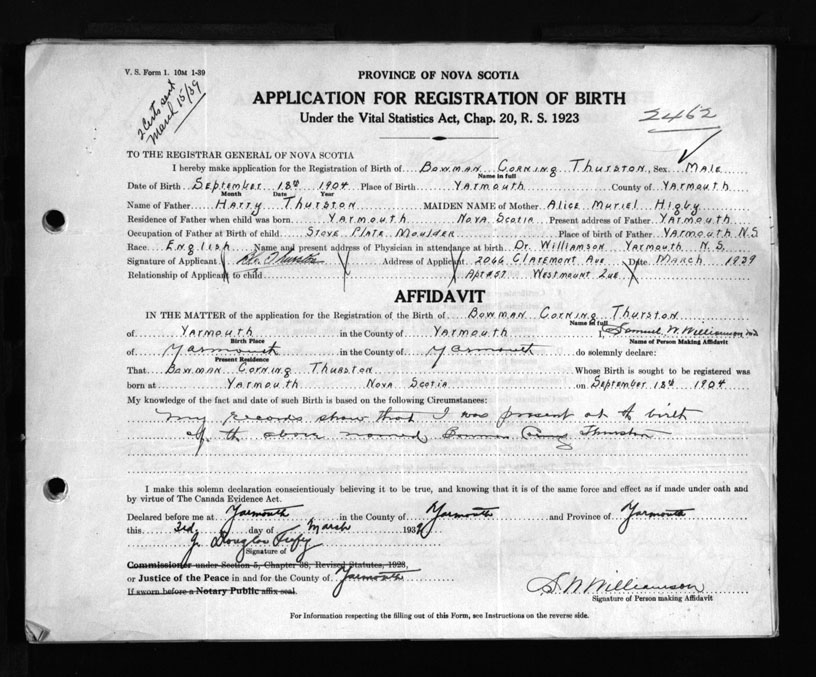 V. S. Form 1. 10M 1-39
2 Certs sent
March 15/39
PROVINCE OF NOVA SCOTIA
APPLICATION FOR REGISTRATION OF BIRTH
Under the Vital Statistics Act, Chap. 20, R. S. 1923
2462
TO THE REGISTRAR GENERAL OF NOVA SCOTIA
I hereby make application for the Registration of Birth of Bowman Corning Thurston, Sex Male
Name in full
Date of Birth September 18th 1904 Place of Birth Yarmouth County of Yarmouth
Month Date Year
Name of Father Harry Thurston MAIDEN NAME of Mother Alice Muriel Higby
Residence of Father when child was born Yarmouth Nova Scotia Present address of Father Yarmouth
Occupation of Father at Birth of child Stove Plate Moulder Place of birth of Father Yarmouth N.S
Race English Name and present address of Physician in attendance at birth Dr. Williamson Yarmouth N.S.
Signature of Applicant Thurston Address of Applicant 2066 Claremont Ave Date March 1939
Relationship of Applicant to child Apt 57 Westmount Que
AFFIDAVIT
IN THE MATTER of the application for the Registration of the Birth of Bowman Corning Thurston
Name in full
of Yarmouth in the County of Yarmouth I, Samuel W. Williamson M.D.
Birth Place Name of Person Making Affidavit
of Yarmouth in the County of Yarmouth do solemnly declare:
Present Residence
That Bowman Corning Thurston Whose Birth is sought to be registered was
born at Yarmouth Nova Scotia on September 18th 1904
My knowledge of the fact and date of such Birth is based on the following Circumstances:
My records show that I was present at the birth
of the above named Bowman Corning Thurston
I make this solemn declaration conscientiously believing it to be true, and knowing that it is of the same force and effect as if made under oath and
by virtue of The Canada Evidence Act.
Declared before me at Yarmouth in the County of Yarmouth and Province of Yarmouth
this 3rd day of March 1939
J. Douglas
Signature of
Commissioner under Section 5, Chapter 38, Revised Statutes, 1923,
or Justice of the Peace in and for the County of Yarmouth
If sworn before a Notary Public affix seal.
S. W. Williamson
Signature of Person making Affidavit
For Information respecting the filling out of this Form, see Instructions on the reverse side.